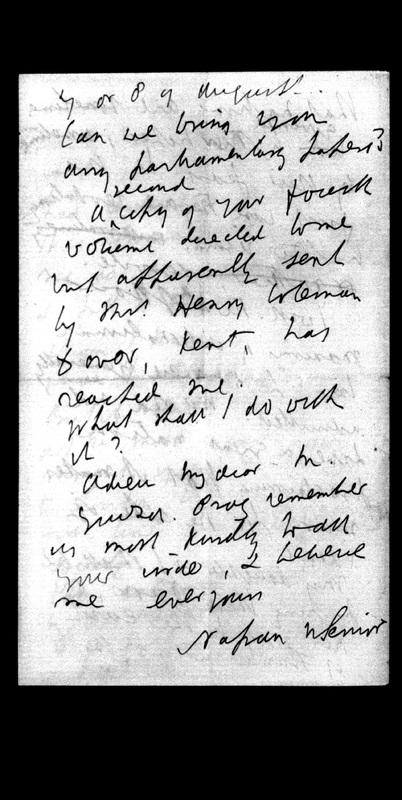 7 or 8 of August.
Can we bring you
any parliamentary papers?
second
A copy of your fourth
volume directed to me
but apparently sent
by Mrs. Henry Coleman
Dover, Kent, has
reached me.
What shall I do with
it?
Adieu my dear M.
Guizot. Pray remember
us most kindly to all
your circle, & believe
me ever yours
Nassau W Senior